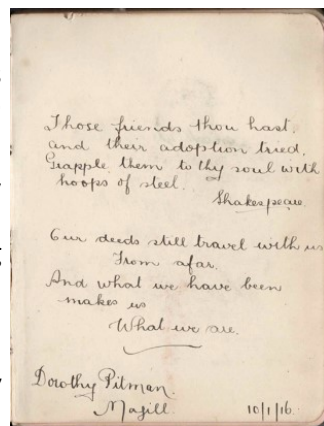 Those friends thou hast,
and their adoption tried,
Grapple them to thy soul with
hoops of steel.
Shakespeare
Our deeds still travel with us
From afar.
And what we have been
makes us
What we are.
Dorothy Pitman.
Magill.
10/1/16.